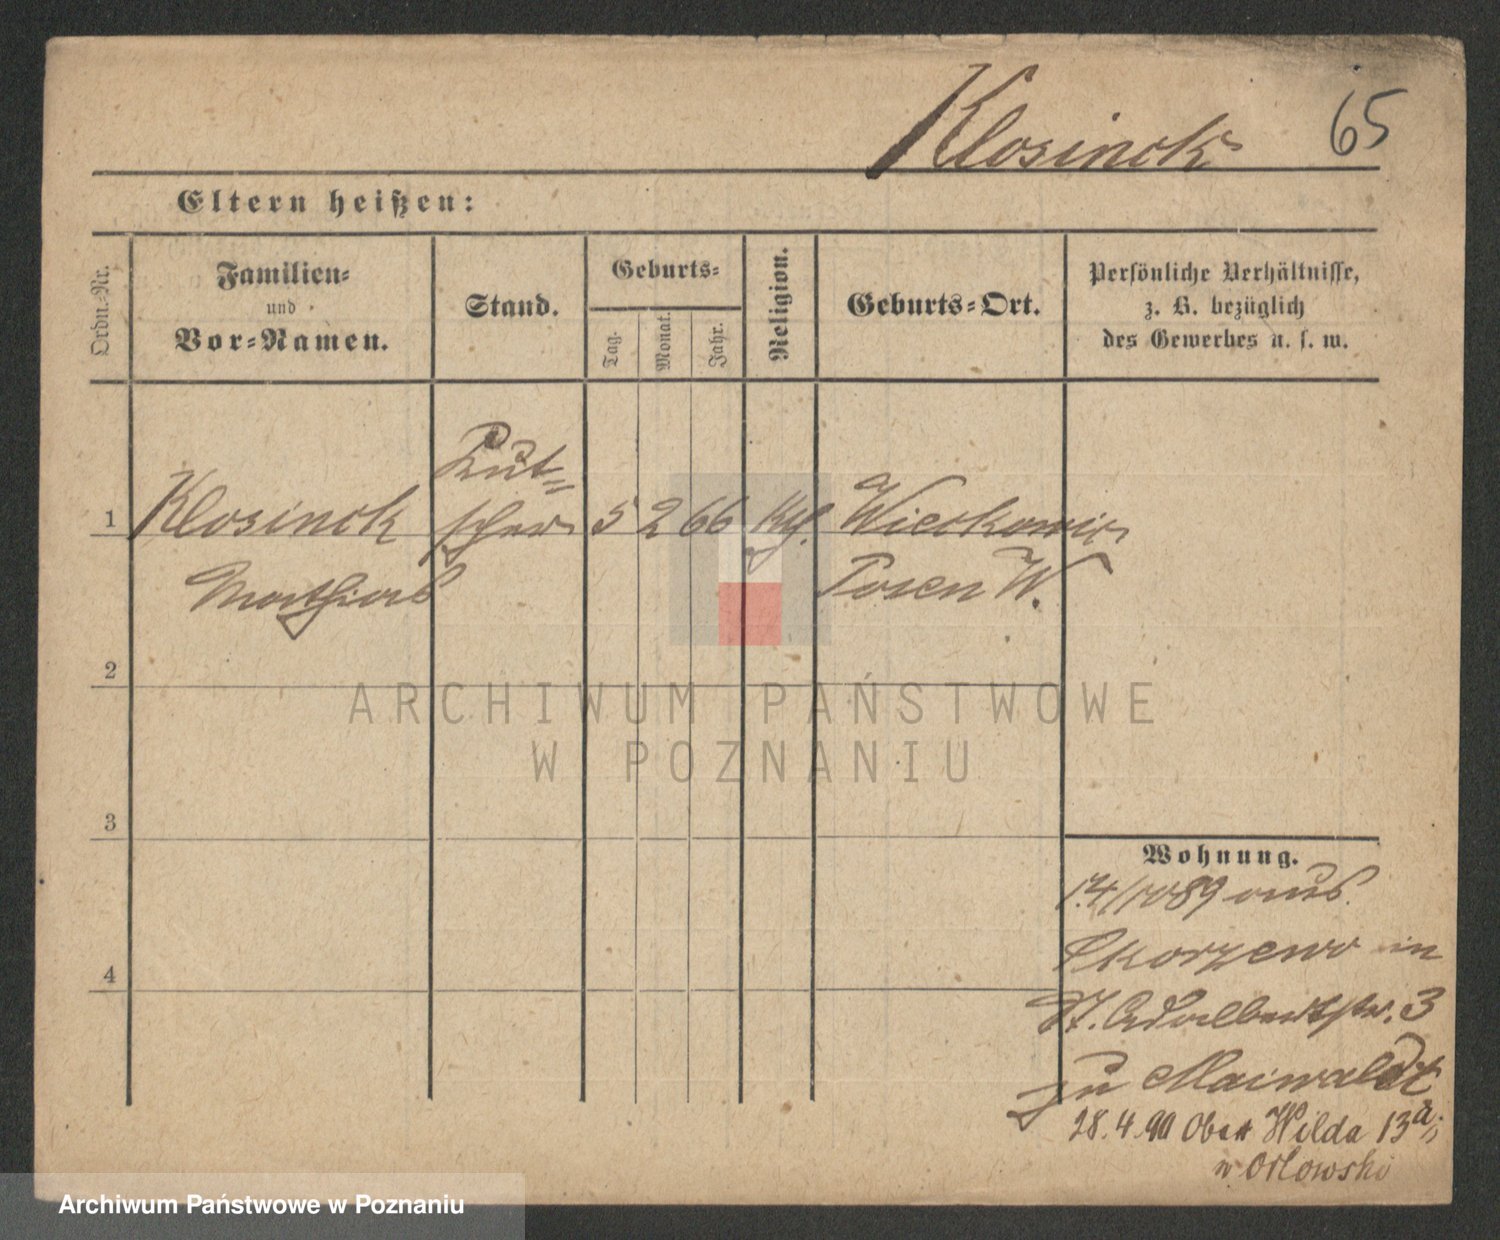 Klosinck 65
Eltern heißen:
Ordn.-Nr.
Familien-
und
Vor-Namen.
Stand.
Geburts-
Tag.
Monat.
Jahr.
Religion.
Geburts-Ort.
Persönliche Verhältnisse,
z. B. bezüglich
des Gewerbes u. s. w.
Kut=
1 Klosinck scher 5 2 66 Kth. Wieckowice
Mathias Posen W.
2
3
4
Wohnung.
14/10 89 aus
Skorzewo in
St. Adalbertstr. 3
zu Maiwaldt
28.4.90 Ober Wilda 13a
Orlowski
ARCHIWUM PAŃSTWOWE
W POZNANIU
Archiwum Państwowe w Poznaniu